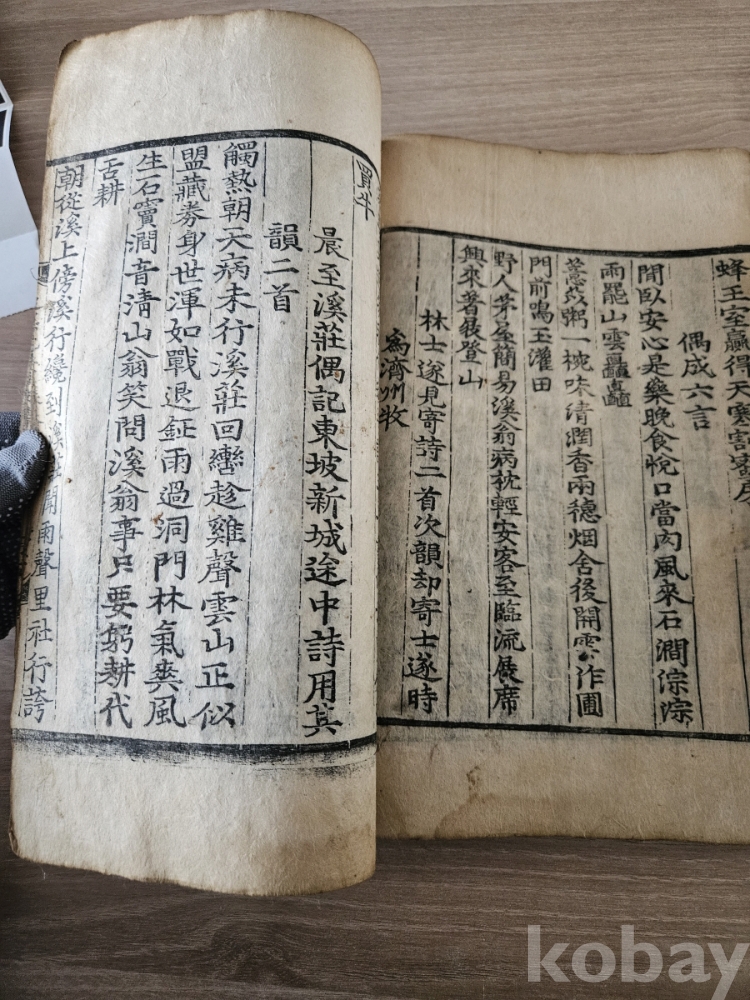 蜂王室贏得天寒割蜜房
偶成六言
閒臥安心是藥晚食悅口當肉風來石澗淙淙
雨罷山雲矗矗
薏苡粥一椀味清潤香兩穗烟舍後開雲作圃
門前鳴玉灌田
野人茅屋簡易溪翁病枕輕安客至臨流展席
興來著屐登山
林士遂見寄詩二首次韻却寄士遂時
爲濟州牧
買牛
晨至溪莊偶記東坡新城途中詩用其
韻二首
觸熱朝天病未行溪莊回轡趁雞聲雲山正似
盟藏券身世渾如戰退鉦雨過洞門林氣爽風
生石竇澗音清山翁笑問溪翁事只要躬耕代
舌耕
朝從溪上傍溪行纔到溪莊聞雨聲里社行誇
kobay